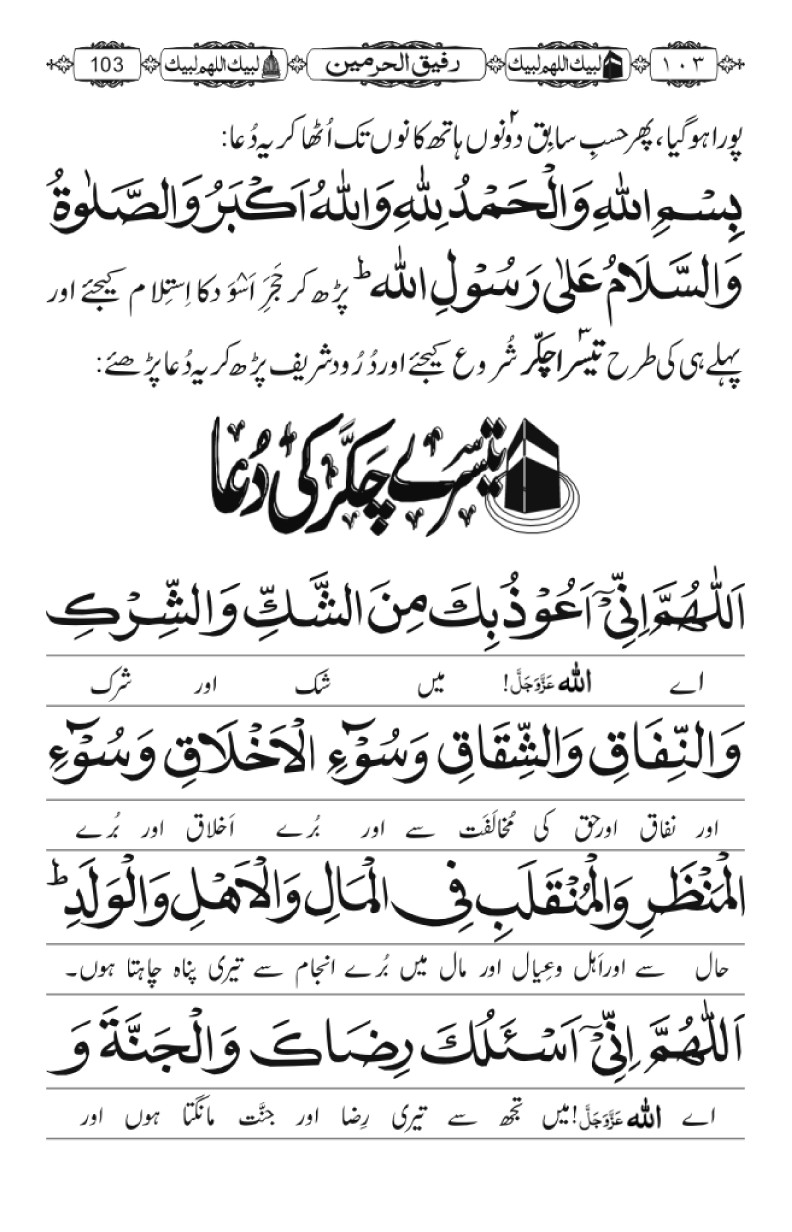 ۱۰۳ لبیك اللھم لبیك رفیق الحرمین لبیك اللھم لبیك 103
پورا ہو گیا، پھر حسبِ سابِق دونوں ہاتھ کانوں تک اُٹھا کر یہ دُعا:
بِسْمِ اللّٰهِ وَالْحَمْدُ لِلّٰهِ وَاللّٰهُ اَكْبَرُ وَالصَّلٰوةُ
وَالسَّلَامُ عَلٰى رَسُوْلِ اللّٰه ؕ پڑھ کر حَجَرِ اَسْوَد کا اِستِلام کیجئے اور
پہلے ہی کی طرح تیسرا چکّر شُروع کیجئے اور دُرُود شریف پڑھ کر یہ دُعا پڑھئے:
تیسرے چکّر کی دُعا
اَللّٰهُمَّ اِنِّیْۤ اَعُوْذُ بِكَ مِنَ الشَّكِّ وَالشِّرْكِ
اے اللّٰه عَزَّوَجَلَّ! میں شک اور شرک
وَالنِّفَاقِ وَالشِّقَاقِ وَسُوْٓءِ الْاَخْلَاقِ وَسُوْٓءِ
اور نفاق اور حق کی مُخالَفَت سے اور بُرے اَخلاق اور بُرے
الْمَنْظَرِ وَالْمُنْقَلَبِ فِی الْمَالِ وَالْاَهْلِ وَالْوَلَدِ ؕ
حال سے اور اَہل وعِیال اور مال میں بُرے انجام سے تیری پناہ چاہتا ہوں۔
اَللّٰهُمَّ اِنِّیْۤ اَسْئَلُكَ رِضَاكَ وَالْجَنَّةَ وَ
اے اللّٰه عَزَّوَجَلَّ! میں تجھ سے تیری رِضا اور جنَّت مانگتا ہوں اور